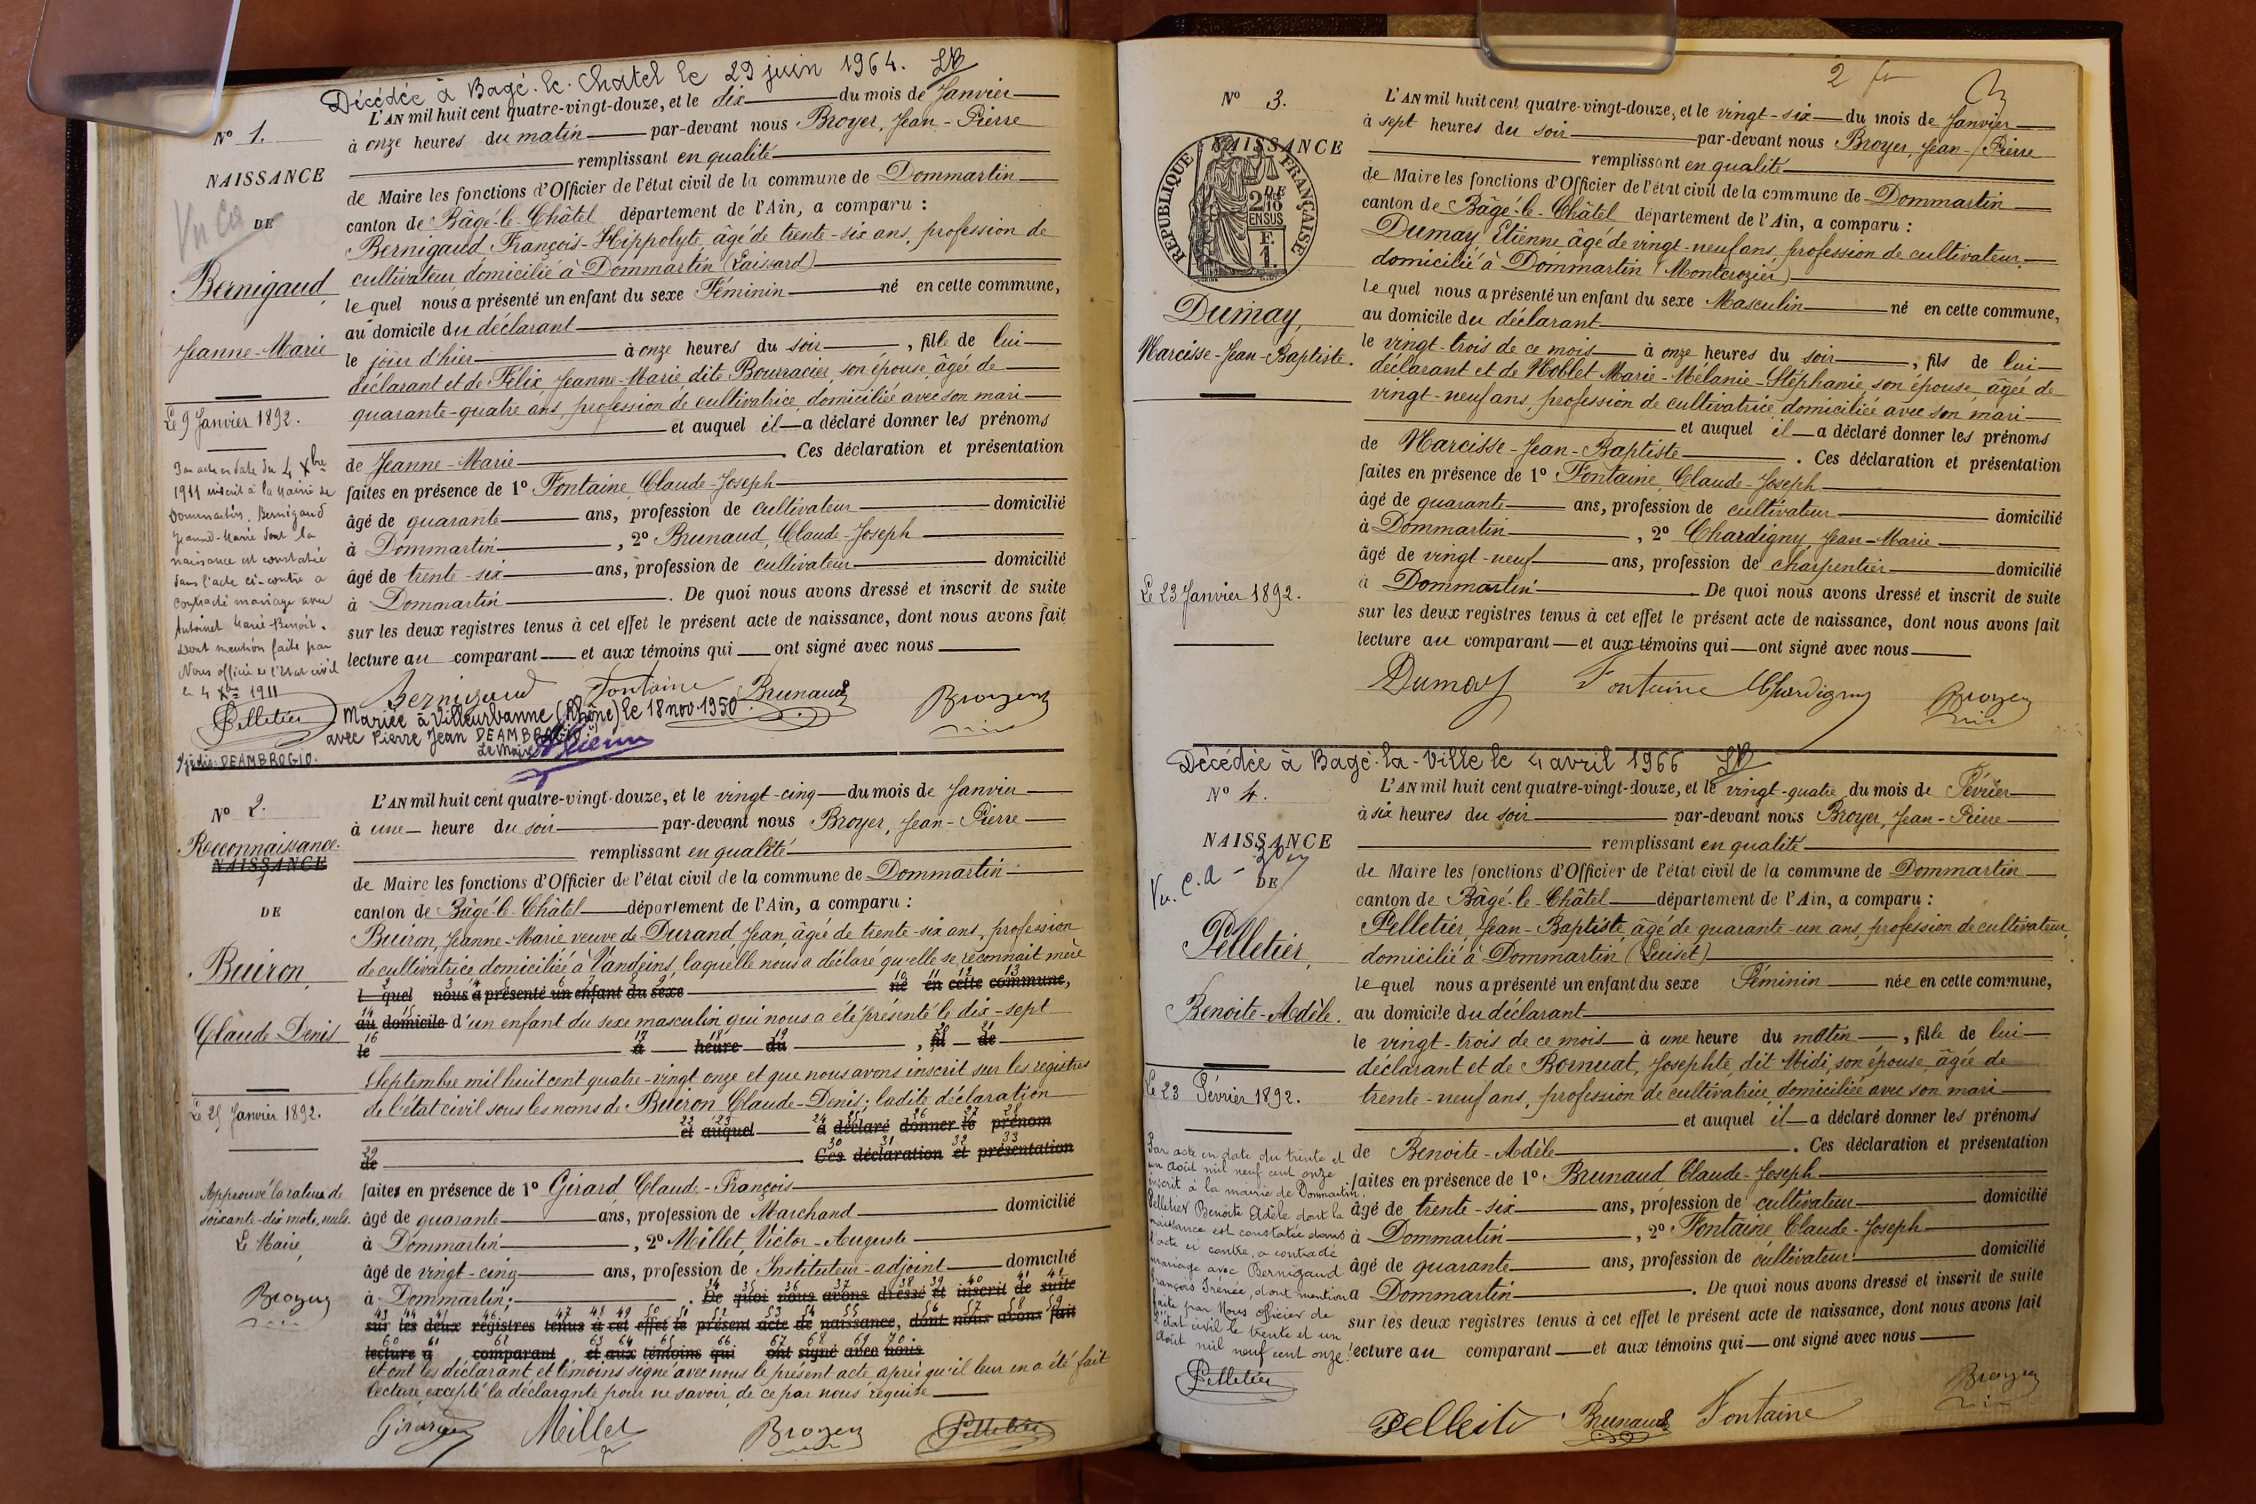 Décédée à Bagé-le-Chatel le 29 juin 1964.
N° 1.
NAISSANCE
DE
Bernigaud,
Jeanne-Marie
Le 9 Janvier 1892.
Par acte en date du 4 Xbre
1911 inscrit à la Mairie de
Dommartin, Bernigaud
Jeanne-Marie dont la
naissance est constatée
dans l'acte ci-contre a
contracté mariage avec
Antoinet Marie-Benoit.
Dont mention faite par
Nous officier de l'Etat civil
le 4 Xbre 1911
Pelletier
L'AN mil huit cent quatre-vingt-douze, et le dix du mois de Janvier
à onze heures du matin par-devant nous Broyer, Jean-Pierre
remplissant en qualité
de Maire les fonctions d'Officier de l'état civil de la commune de Dommartin
canton de Bâgé-le-Châtel département de l'Ain, a comparu :
Bernigaud François-Hippolyte, âgé de trente-six ans, profession de
cultivateur, domicilié à Dommartin (Laissard)
lequel nous a présenté un enfant du sexe Féminin né en cette commune,
au domicile du déclarant
le jour d'hier à onze heures du soir, fille de lui
déclarant et de Félix, Jeanne-Marie, dite Bourracier, son épouse, âgée de
quarante-quatre ans, profession de cultivatrice, domiciliée avec son mari
et auquel il a déclaré donner les prénoms
de Jeanne-Marie. Ces déclaration et présentation
faites en présence de 1° Fontaine, Claude-Joseph
âgé de quarante ans, profession de cultivateur domicilié
à Dommartin, 2° Brunaud, Claude-Joseph
âgé de trente-six ans, profession de cultivateur domicilié
à Dommartin. De quoi nous avons dressé et inscrit de suite
sur les deux registres tenus à cet effet le présent acte de naissance, dont nous avons fait
lecture au comparant et aux témoins qui ont signé avec nous
Bernigaud Fontaine Brunaud Broyer
Mariée à Villeurbanne (Rhône) le 18 nov. 1950
avec Pierre Jean DEAMBROGIO
Le Maire
DEAMBROGIO.
N° 2.
Reconnaissance
NAISSANCE
DE
Buiron,
Claude-Denis
Le 25 Janvier 1892.
Approuvé la rature de
soixante-dix mots nuls.
Le Maire,
Broyer
L'AN mil huit cent quatre-vingt-douze, et le vingt-cinq du mois de Janvier
à une heure du soir par-devant nous Broyer, Jean-Pierre
remplissant en qualité
de Maire les fonctions d'Officier de l'état civil de la commune de Dommartin
canton de Bâgé-le-Châtel département de l'Ain, a comparu :
Buiron, Jeanne-Marie veuve de Durand Jean, âgée de trente-six ans, profession
de cultivatrice domiciliée à Vandeins, laquelle nous a déclaré qu'elle se reconnait mère
l quel nous a présenté un enfant du sexe né en cette commune,
au domicile d'un enfant du sexe masculin qui nous a été présenté le dix-sept
le à heure du, fil de
Septembre mil huit cent quatre-vingt onze et que nous avons inscrit sur les registres
de l'état civil sous les noms de Buiron Claude-Denis; ladite déclaration
et auquel a déclaré donner le prénom
de Ces déclaration et présentation
faites en présence de 1° Girard, Claude-François
âgé de quarante ans, profession de Marchand domicilié
à Dommartin, 2° Millet, Victor-Auguste
âgé de vingt-cinq ans, profession de Instituteur-adjoint domicilié
à Dommartin; De quoi nous avons dressé et inscrit de suite
sur les deux registres tenus à cet effet le présent acte de naissance, dont nous avons fait
lecture a comparant et aux témoins qui ont signé avec nous
et ont les déclarant et témoins signé avec nous le présent acte après qu'il leur en a été fait
lecture excepté la déclarante pour ne savoir, de ce par nous requise
Girard Millet Broyer Pelletier
2
N° 3.
NAISSANCE
REPUBLIQUE FRANÇAISE
2 DES 10
EN SUS
Dumay,
Narcisse-Jean-Baptiste.
Le 23 Janvier 1892.
L'AN mil huit cent quatre-vingt-douze, et le vingt-six du mois de Janvier
à sept heures du soir par-devant nous Broyer, Jean-Pierre
remplissant en qualité
de Maire les fonctions d'Officier de l'état civil de la commune de Dommartin
canton de Bâgé-le-Châtel département de l'Ain, a comparu :
Dumay, Etienne âgé de vingt-neuf ans, profession de cultivateur
domicilié à Dommartin (Montcrozier)
lequel nous a présenté un enfant du sexe Masculin né en cette commune,
au domicile du déclarant
le vingt-trois de ce mois à onze heures du soir, fils de lui
déclarant et de Noblet Marie-Mélanie-Stéphanie, son épouse, âgée de
vingt-neuf ans, profession de cultivatrice, domiciliée avec son mari
et auquel il a déclaré donner les prénoms
de Narcisse-Jean-Baptiste. Ces déclaration et présentation
faites en présence de 1° Fontaine, Claude-Joseph
âgé de quarante ans, profession de cultivateur domicilié
à Dommartin, 2° Chardigny, Jean-Marie
âgé de vingt-neuf ans, profession de charpentier domicilié
à Dommartin De quoi nous avons dressé et inscrit de suite
sur les deux registres tenus à cet effet le présent acte de naissance, dont nous avons fait
lecture au comparant et aux témoins qui ont signé avec nous
Dumay Fontaine Chardigny Broyer
Décédée à Bagé-la-Ville le 4 avril 1966
N° 4.
NAISSANCE
DE
Vu. C.A
Pelletier,
Benoite-Adèle.
Le 23 Février 1892.
Par acte en date du trente et
un Août mil neuf cent onze
inscrit à la mairie de Dommartin.
Pelletier Benoite Adèle dont la
naissance est constatée dans
l'acte ci contre, a contracté
mariage avec Bernigaud
François Irénée, dont mention
faite par Nous officier de
l'état civil le trente et un
Août mil neuf cent onze.
Pelletier
L'AN mil huit cent quatre-vingt-douze, et le vingt-quatre du mois de Février
à six heures du soir par-devant nous Broyer, Jean-Pierre
remplissant en qualité
de Maire les fonctions d'Officier de l'état civil de la commune de Dommartin
canton de Bâgé-le-Châtel département de l'Ain, a comparu :
Pelletier, Jean-Baptiste, âgé de quarante-un ans, profession de cultivateur,
domicilié à Dommartin (Luiset)
lequel nous a présenté un enfant du sexe Féminin née en cette commune,
au domicile du déclarant
le vingt-trois de ce mois à une heure du matin, fille de lui
déclarant et de Bornuat, Josephte, dit Midi, son épouse, âgée de
trente-neuf ans, profession de cultivatrice, domiciliée avec son mari
et auquel il a déclaré donner les prénoms
de Benoite-Adèle. Ces déclaration et présentation
faites en présence de 1° Brunaud, Claude-Joseph
âgé de trente-six ans, profession de cultivateur domicilié
à Dommartin, 2° Fontaine, Claude-Joseph
âgé de quarante ans, profession de cultivateur domicilié
a Dommartin. De quoi nous avons dressé et inscrit de suite
sur les deux registres tenus à cet effet le présent acte de naissance, dont nous avons fait
lecture au comparant et aux témoins qui ont signé avec nous
Pelletier Brunaud Fontaine Broyer